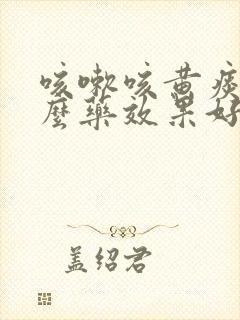 咳嗽咳黄痰
么药效果好
盖绍君